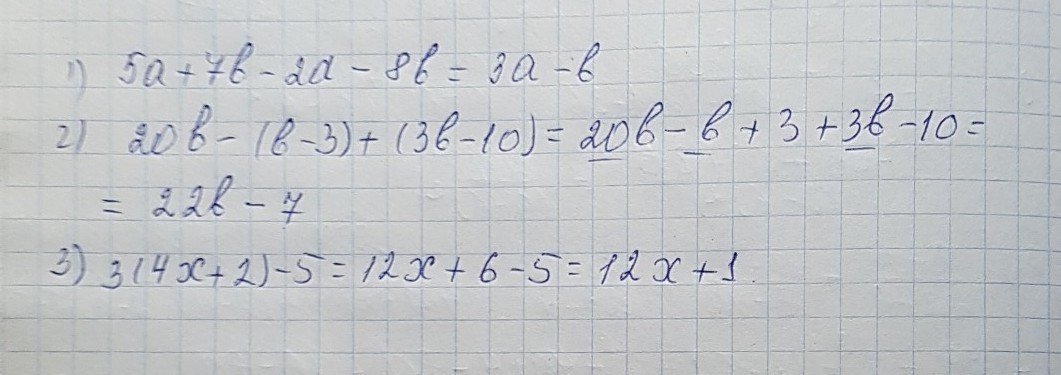 1) 5a + 7b - 2a - 8b = 3a - b
2) 20b - (b - 3) + (3b - 10) = 20b - b + 3 + 3b - 10 =
= 22b - 7
3) 3(4x + 2) - 5 = 12x + 6 - 5 = 12x + 1.